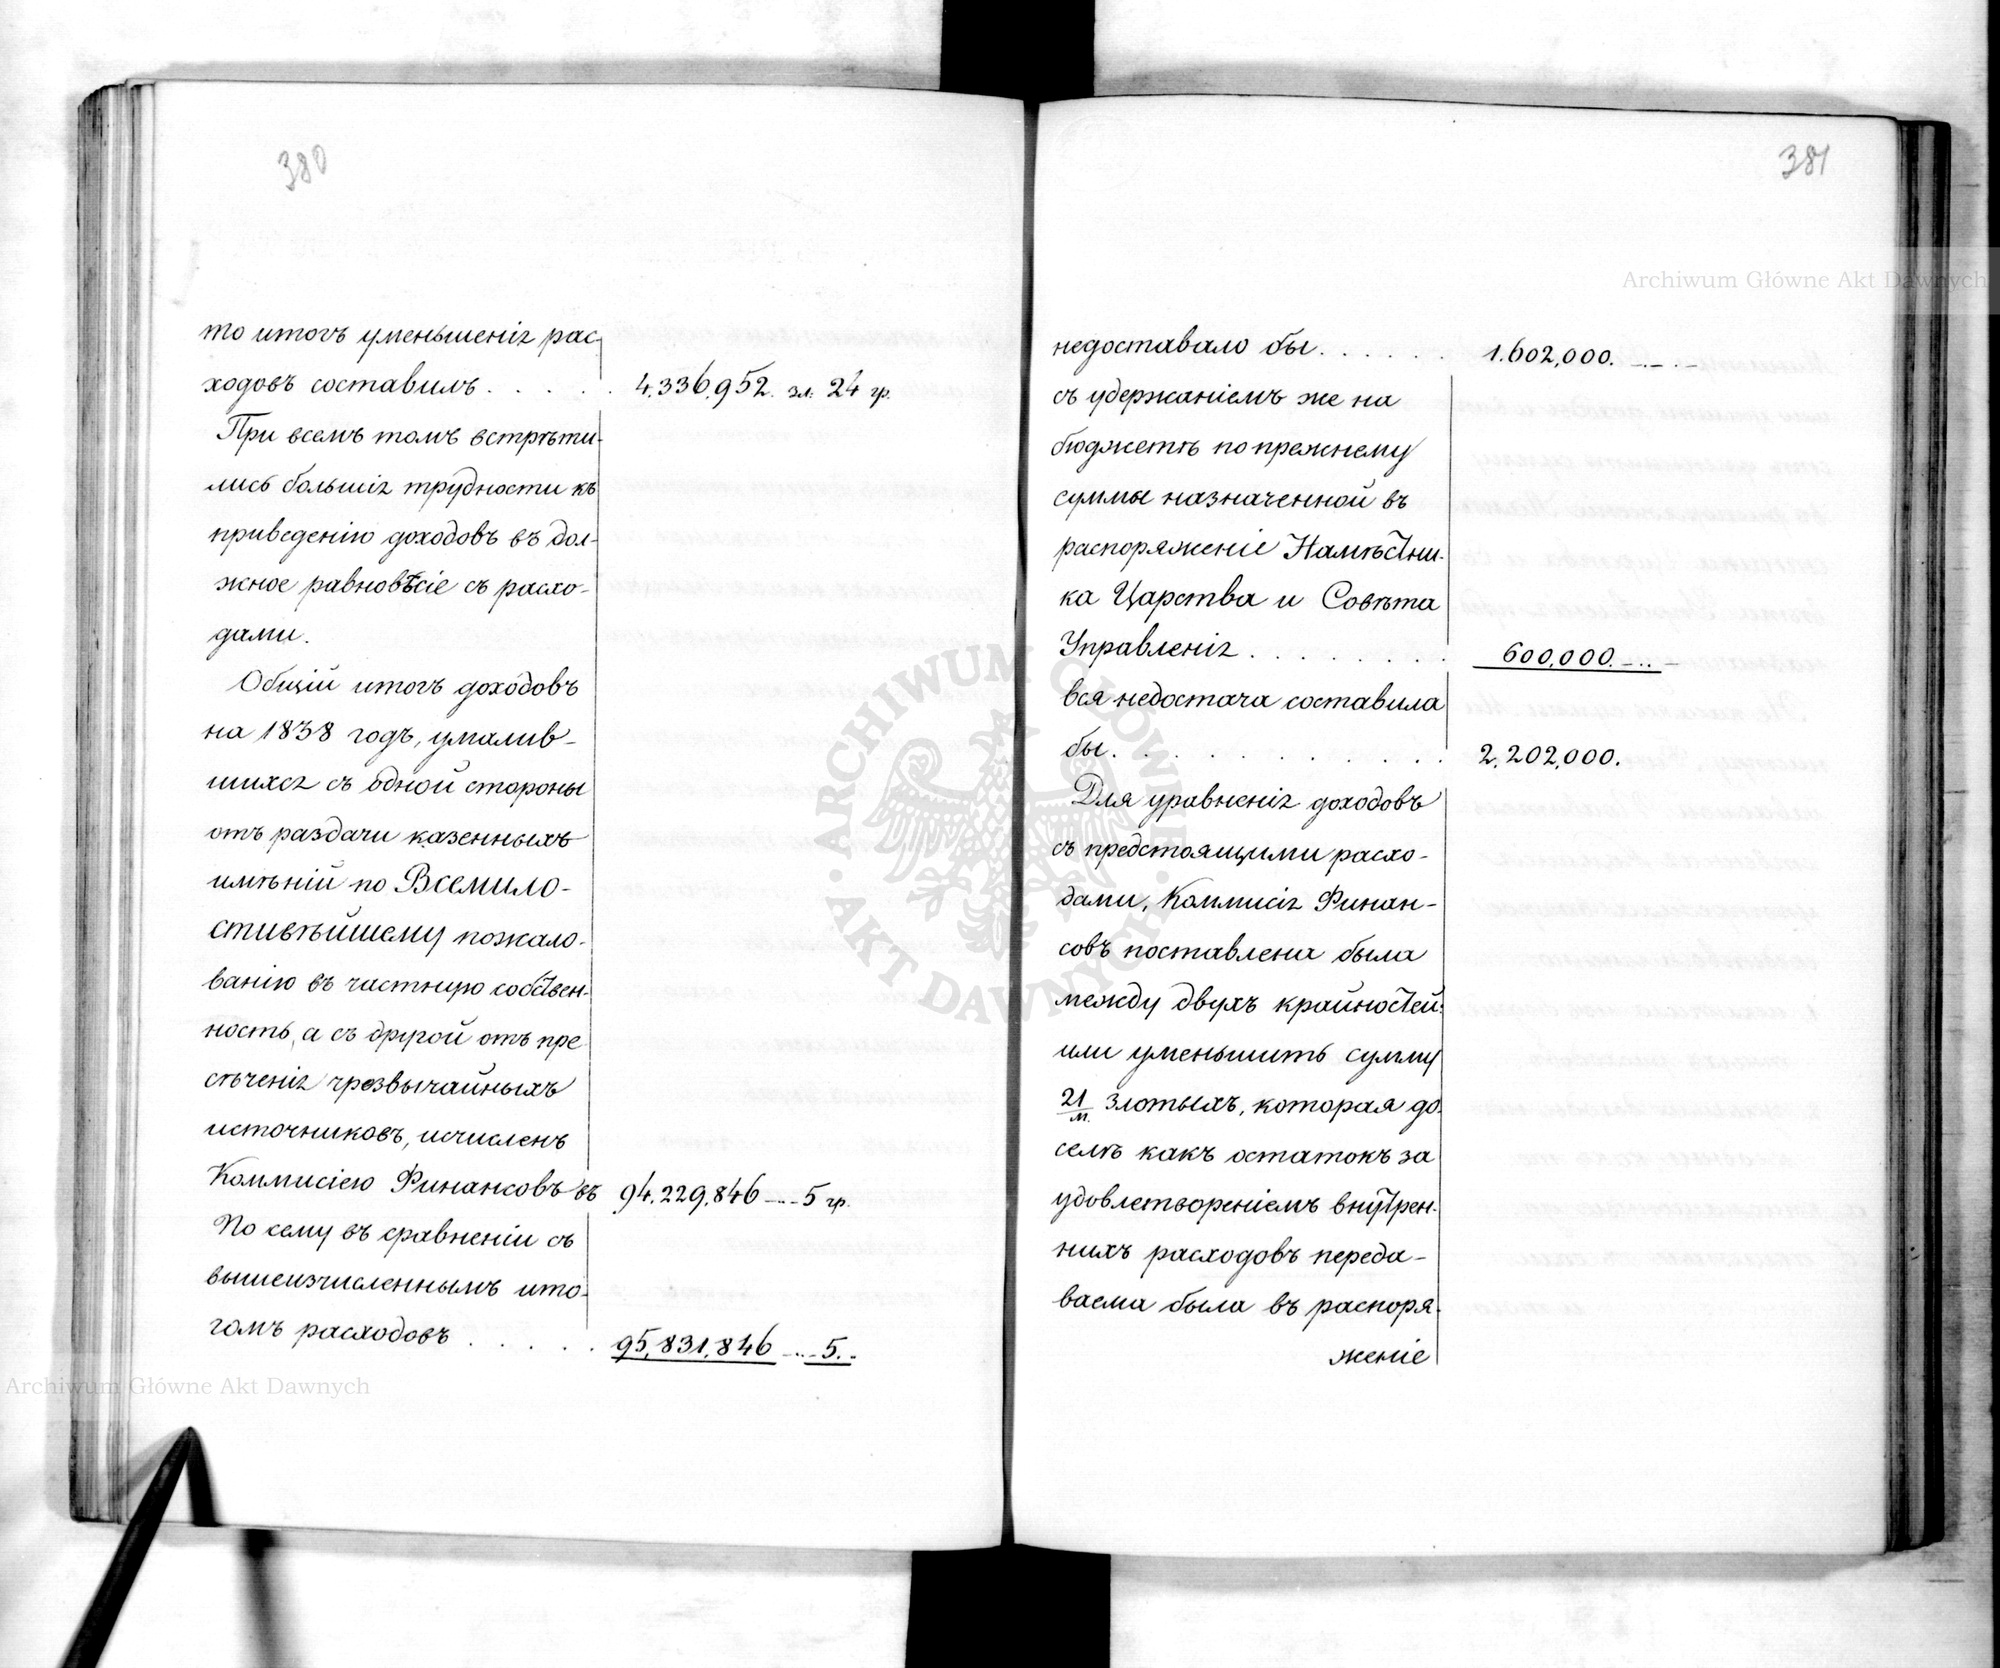 380
то итогъ уменьшенія рас-
ходовъ составилъ . . . . . 4,336,952. зл: 24 гр.
При всемъ томъ встрѣти-
лись большія трудности къ
приведенію доходовъ въ дол-
жное равновѣсіе съ расхо-
дами.
Общій итогъ доходовъ
на 1838 годъ, умалив-
шихся съ одной стороны
отъ раздачи казенныхъ
имѣній по Всемило-
стивѣйшему пожало-
ванію въ частную собствен-
ность, а съ другой отъ пре
сѣченія чрезвычайныхъ
источниковъ, исчисленъ
Коммисіею Финансовъ въ 94,229,846 -..- 5 гр.
По сему въ сравненіи съ
вышеизчисленнымъ ито-
гомъ расходовъ . . . . . 95,831,846 -..- 5..
381
недоставало бы . . . . . . 1.602,000. -..-.-
съ удержаніемъ же на
бюджетѣ по прежнему
суммы назначенной въ
распоряженіе Намѣстни-
ка Царства и Совѣта
Управленія . . . . . . . . 600,000. -..-
вся недостача составила
бы . . . . . . . . . . . 2,202,000.
Для уравненія доходовъ
съ предстоящими расхо-
дами, Коммисія Финан-
совъ поставлена была
между двухъ крайностей:
или уменьшить сумму
21/м. злотыхъ, которая до
селѣ какъ остатокъ за
удовлетвореніемъ внутрен-
нихъ расходовъ переда-
ваема была въ распоря-
женіе
Archiwum Główne Akt Dawnych
Archiwum Główne Akt Dawnych
ARCHIWUM GŁÓWNE · AKT DAWNYCH ·